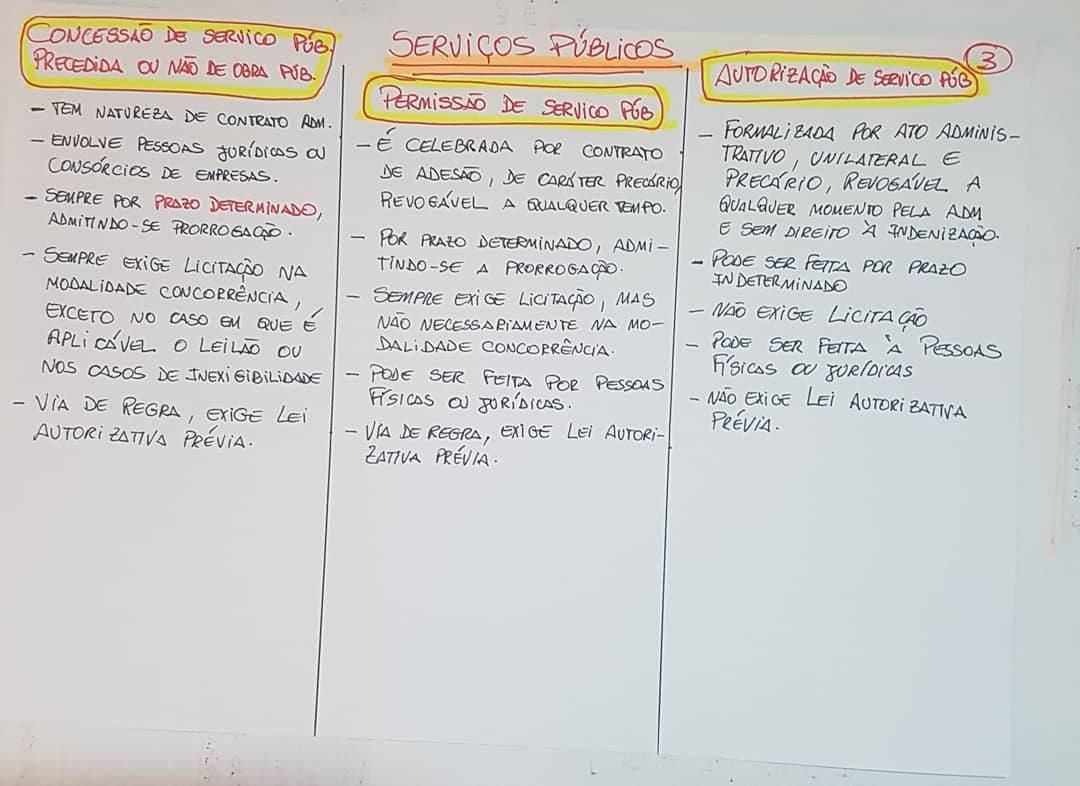 SERVIÇOS PÚBLICOS
3
CONCESSÃO DE SERVICO PÚB.
PRECEDIDA OU NÃO DE OBRA PÚB.
- TEM NATUREZA DE CONTRATO ADM.
- ENVOLVE PESSOAS JURÍDICAS OU
CONSÓRCIOS DE EMPRESAS.
- SEMPRE POR PRAZO DETERMINADO,
ADMITINDO-SE PRORROGAÇÃO.
- SEMPRE EXIGE LICITAÇÃO NA
MODALIDADE CONCORRÊNCIA,
EXCETO NO CASO EM QUE É
APLICÁVEL O LEILÃO OU
NOS CASOS DE INEXIGIBILIDADE
- VIA DE REGRA, EXIGE LEI
AUTORIZATIVA PRÉVIA.
PERMISSÃO DE SERVICO PÚB
- É CELEBRADA POR CONTRATO
DE ADESÃO, DE CARÁTER PRECÁRIO,
REVOGÁVEL A QUALQUER TEMPO.
- POR PRAZO DETERMINADO, ADMI-
TINDO-SE A PRORROGAÇÃO.
- SEMPRE EXIGE LICITAÇÃO, MAS
NÃO NECESSARIAMENTE NA MO-
DALIDADE CONCORRÊNCIA.
- PODE SER FEITA POR PESSOAS
FÍSICAS OU JURÍDICAS.
- VIA DE REGRA, EXIGE LEI AUTORI-
ZATIVA PRÉVIA.
AUTORIZAÇÃO DE SERVICO PÚB
- FORMALIZADA POR ATO ADMINIS-
TRATIVO, UNILATERAL E
PRECÁRIO, REVOGÁVEL A
QUALQUER MOMENTO PELA ADM
E SEM DIREITO À INDENIZAÇÃO.
- PODE SER FEITA POR PRAZO
INDETERMINADO
- NÃO EXIGE LICITAÇÃO
- PODE SER FEITA À PESSOAS
FÍSICAS OU JURÍDICAS
- NÃO EXIGE LEI AUTORIZATIVA
PRÉVIA.